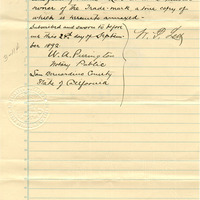 owner of the Trade-mark, a true copy of
which is hereunto annexed.
Subscribed and sworn to before
me this 28th day of Septem-
ber 1892
W. A. Purington
Notary Public
San Bernardino County
State of California